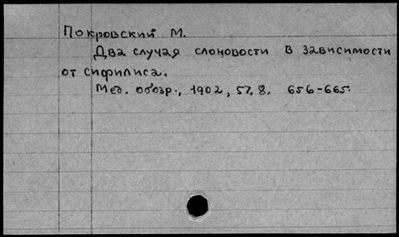 Покровский М.
Два случая слоновости в зависимости
от сифилиса.
Мед. обозр., 1902, 57, 8. 656-665.